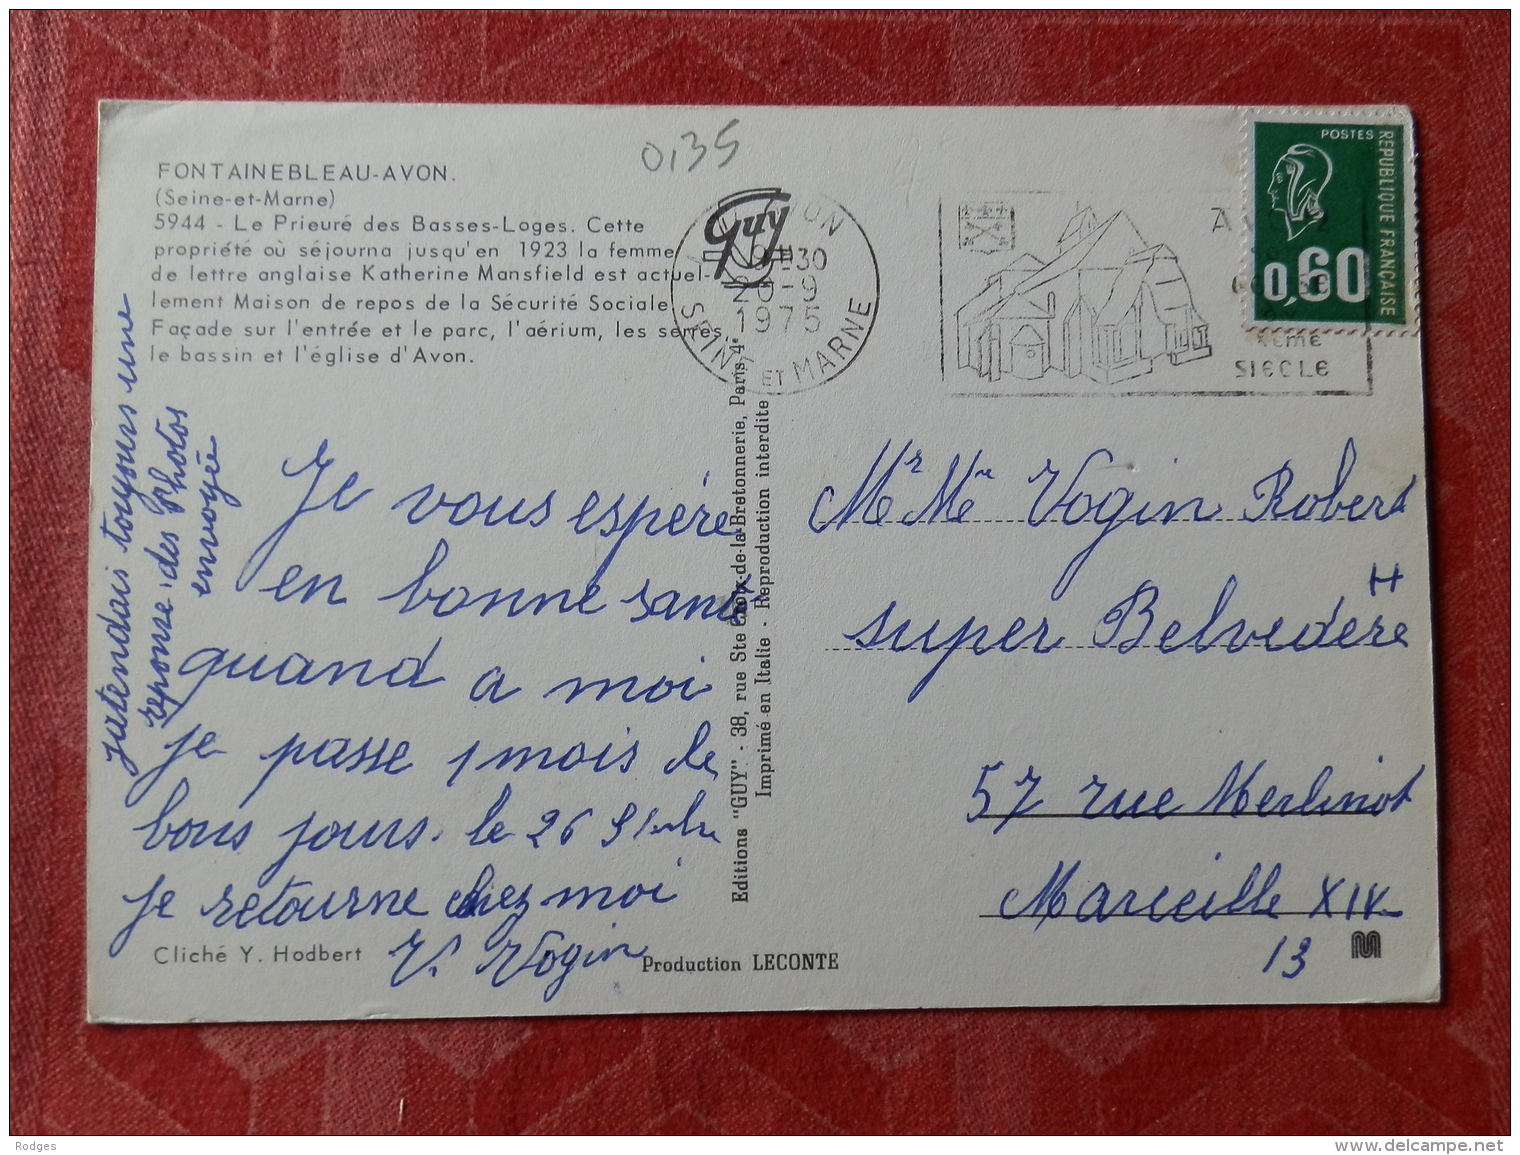 0,35
FONTAINEBLEAU-AVON.
(Seine-et-Marne)
5944 - Le Prieuré des Basses-Loges. Cette
propriété où séjourna jusqu'en 1923 la femme
de lettre anglaise Katherine Mansfield est actuel-
lement Maison de repos de la Sécurité Sociale
Façade sur l'entrée et le parc, l'aérium, les serres,
le bassin et l'église d'Avon.
Guy
H30
20-9
1975
SEINE ET MARNE
SIECLE
POSTES
REPUBLIQUE FRANÇAISE
0,60
jatendais toujours une
reponse des Photos
envoyée
Je vous espére
en bonne santé
quand a moi
je passe 1 mois de
bous jours. le 26
je retourne chez moi
V. Vogin
Editions "GUY" - 38, rue Ste Croix-de-la-Bretonnerie, Paris-4e
Imprimé en Italie - Reproduction interdite
Mr Me Vogin Robert
super Belvedére H
57 rue Merlinot
Marceille XIV
13
Cliché Y. Hodbert
Production LECONTE
Rodges
www.delcampe.net